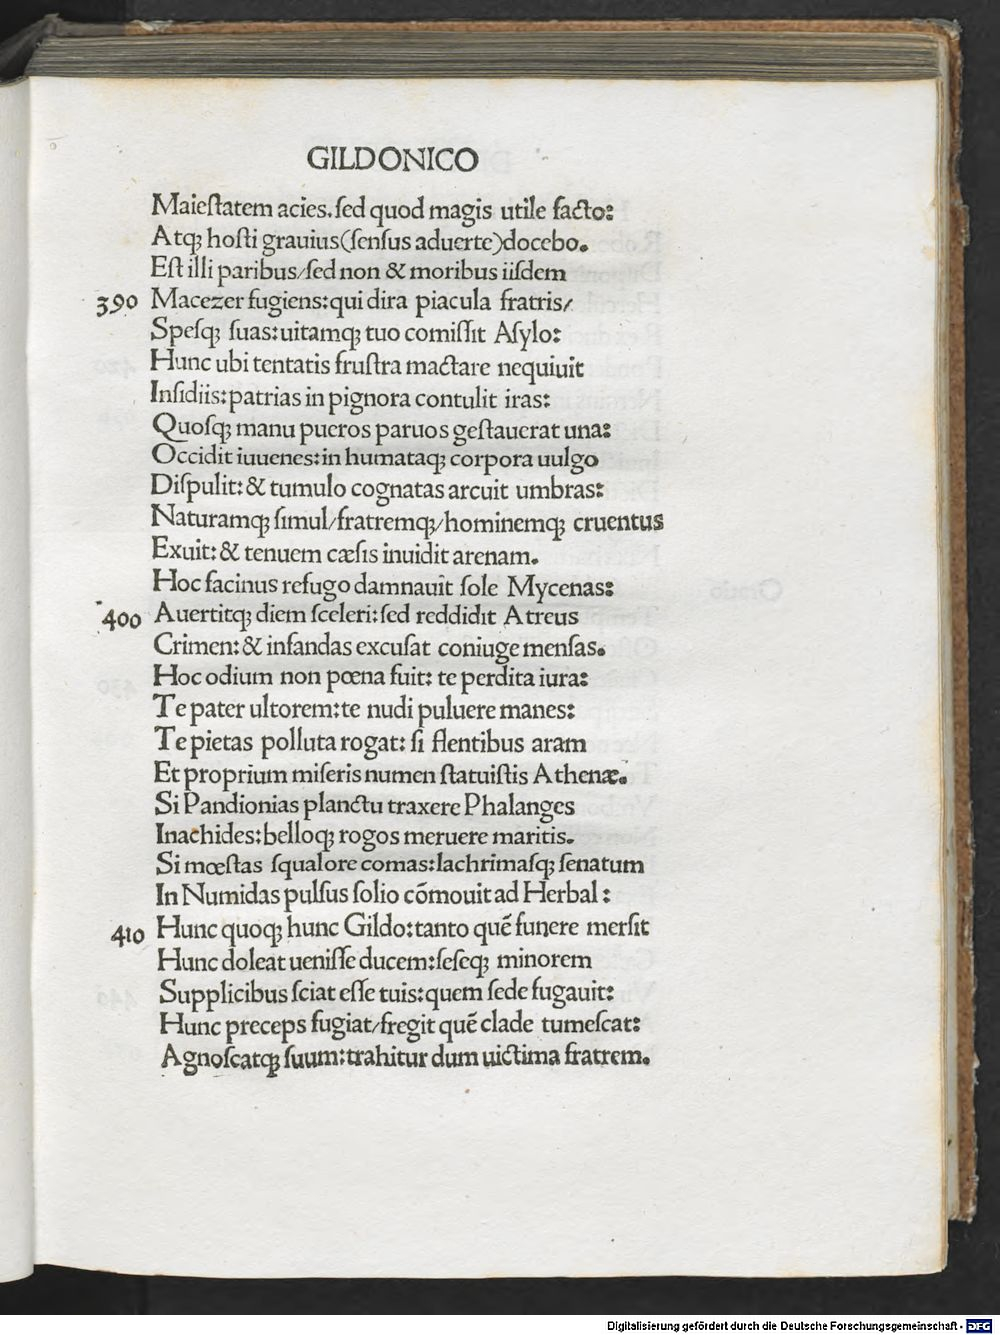 GILDONICO
Maieſtatem acies. ſed quod magis utile facto:
Atqꝫ hoſti grauius(ſenſus aduerte)docebo.
Eſt illi paribus/ſed non & moribus iiſdem
390 Macezer fugiens:qui dira piacula fratris/
Speſqꝫ ſuas:uitamqꝫ tuo comiſſit Aſylo:
Hunc ubi tentatis fruſtra mactare nequiuit
Inſidiis:patrias in pignora contulit iras:
Quoſqꝫ manu pueros paruos geſtauerat una:
Occidit iuuenes:in humataqꝫ corpora uulgo
Diſpulit:& tumulo cognatas arcuit umbras:
Naturamqꝫ ſimul/fratremqꝫ/hominemqꝫ cruentus
Exuit:& tenuem cæſis inuidit arenam.
Hoc facinus refugo damnauit ſole Mycenas:
400 Auertitqꝫ diem ſceleri:ſed reddidit Atreus
Crimen:& infandas excuſat coniuge menſas.
Hoc odium non pœna fuit: te perdita iura:
Te pater ultorem:te nudi puluere manes:
Te pietas polluta rogat: ſi flentibus aram
Et proprium miſeris numen ſtatuiſtis Athenæ.
Si Pandionias planctu traxere Phalanges
Inachides:belloqꝫ rogos meruere maritis.
Si mœſtas ſqualore comas:lachrimaſqꝫ ſenatum
In Numidas pulſus ſolio cōmouit ad Herbal :
410 Hunc quoqꝫ hunc Gildo:tanto quē funere merſit
Hunc doleat ueniſſe ducem:ſeſeqꝫ minorem
Supplicibus ſciat eſſe tuis:quem ſede fugauit:
Hunc preceps fugiat/fregit quē clade tumeſcat:
Agnoſcatqꝫ ſuum:trahitur dum uictima fratrem.
Digitalisierung gefördert durch die Deutsche Forschungsgemeinschaft - DFG